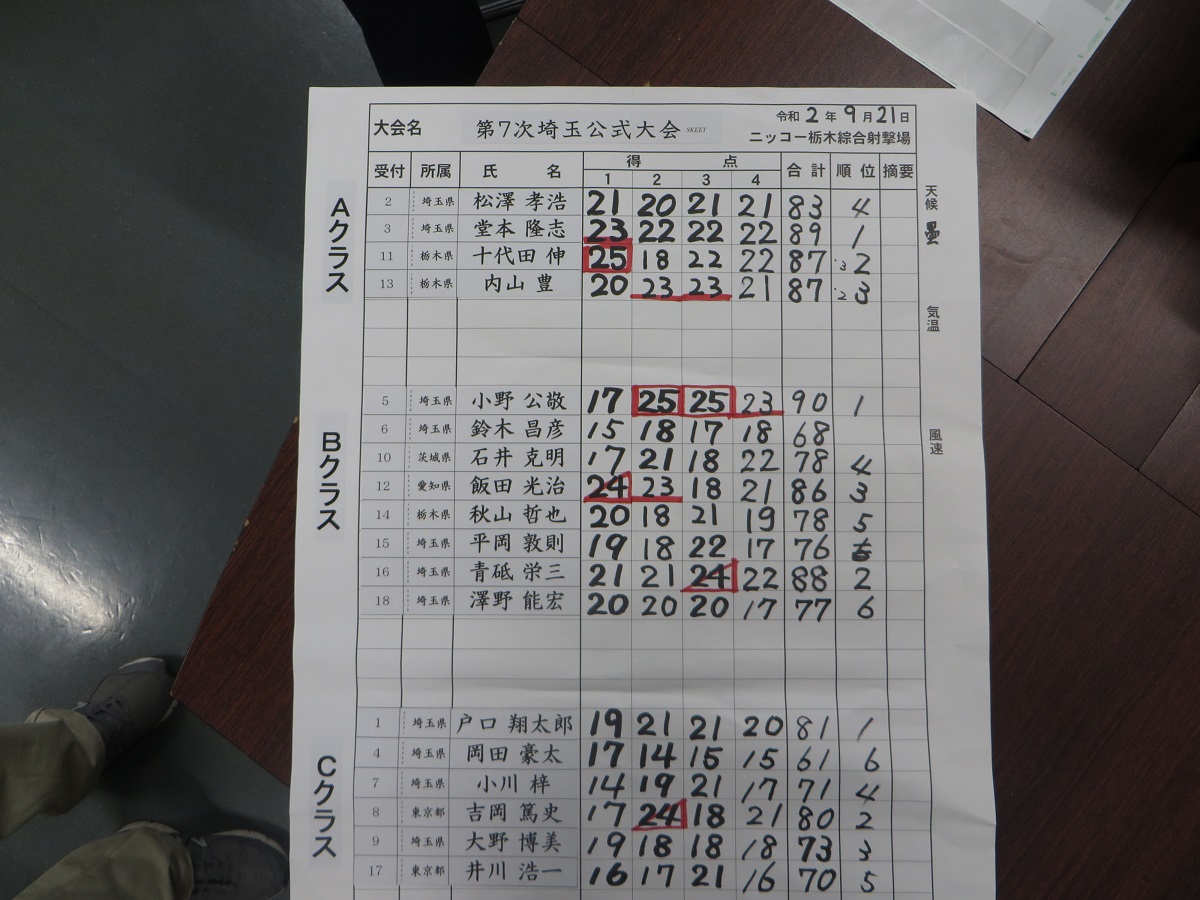 大会名 第7次埼玉公式大会 SKEET 令和 2 年 9 月 21 日
ニッコー栃木綜合射撃場
受付 所属 氏 名 得 点 合計 順位 摘要
1 2 3 4
Aクラス
2 埼玉県 松澤 孝浩 21 20 21 21 83 4
3 埼玉県 堂本 隆志 23 22 22 22 89 1
11 栃木県 十代田 伸 25 18 22 22 87 '3 2
13 栃木県 内山 豊 20 23 23 21 87 '2 3
Bクラス
5 埼玉県 小野 公敬 17 25 25 23 90 1
6 埼玉県 鈴木 昌彦 15 18 17 18 68
10 茨城県 石井 克明 17 21 18 22 78 4
12 愛知県 飯田 光治 24 23 18 21 86 3
14 栃木県 秋山 哲也 20 18 21 19 78 5
15 埼玉県 平岡 敦則 19 18 22 17 76
16 埼玉県 青砥 栄三 21 21 24 22 88 2
18 埼玉県 澤野 能宏 20 20 20 17 77 6
Cクラス
1 埼玉県 戸口 翔太郎 19 21 21 20 81 1
4 埼玉県 岡田 豪太 17 14 15 15 61 6
7 埼玉県 小川 梓 14 19 21 17 71 4
8 東京都 吉岡 篤史 17 24 18 21 80 2
9 埼玉県 大野 博美 19 18 18 18 73 3
17 東京都 井川 浩一 16 17 21 16 70 5
天候
気温
風速